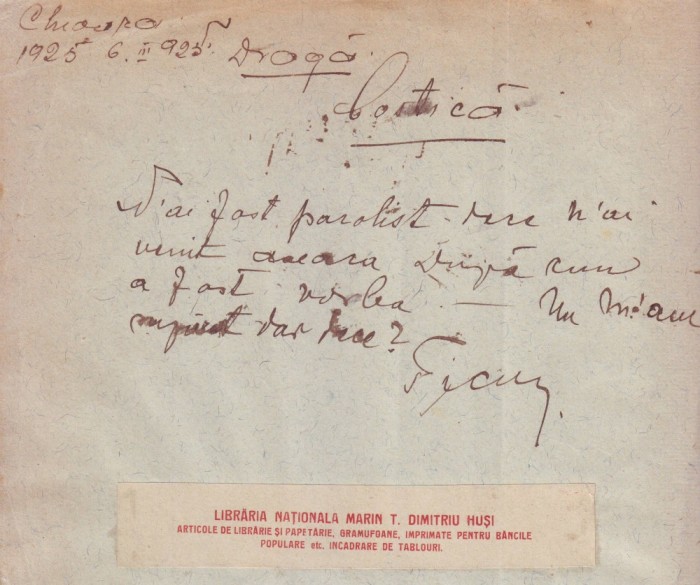 1925 6. III 925. Dragă
Costică
N'ai fost parolist dece n'ai
venit aseara După cum
a fost vorba. — Nu m'am
suparat dar dece?
LIBRĂRIA NAȚIONALA MARIN T. DIMITRIU HUȘI
ARTICOLE DE LIBRĂRIE ȘI PAPETĂRIE, GRAMUFOANE, IMPRIMATE PENTRU BĂNCILE
POPULARE etc. INCADRARE DE TABLOURI.